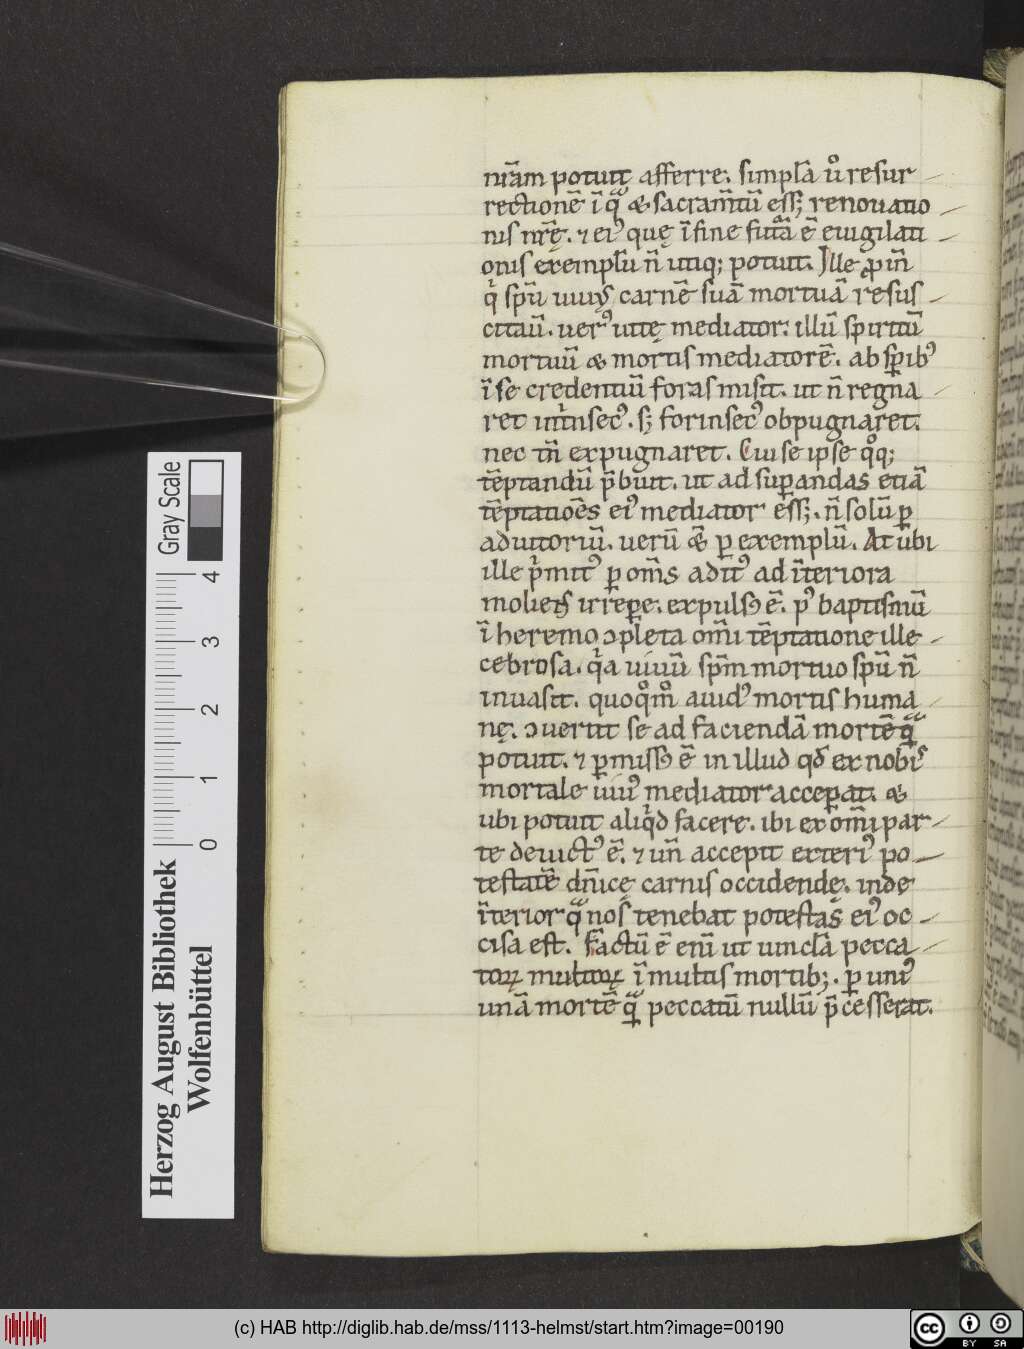 nr̄am potuit afferre. simpla̅ ů resur
rectionē ī q̄ & sacram̄tū ess& renouatio
nis nr̄ę. ⁊ eiꝰ quę ī fine futᷓa ē euigilati
onis exemplū n̄ utiq; potuit. Ille ꝓin̄
q̇ spū uiuꝰ carnē suā mortuā resus
citauit. uerꝰ uitę mediator: illū spiritū
mortuū & mortis mediatorē. ab sp̄ibꝰ
ī se credentiū foras misit. ut n̄ regna
ret inṫnsecꝰ. s; forinsecꝰ obpugnaret.
nec tn̄ expugnaret. Cui se ipse q̊q;
tēptandū p̄buit. ut ad suꝑandas etiā
tēptatioēs eiꝰ mediator ess&. n̄ solū ꝑ
adiutoriū. uerū &̄ ꝑ exemplū. At ubi
ille ṗmitꝰ ꝑ om̄s aditꝰ ad īteriora
moliens irreꝑe. expulsꝰ ē. pꝰ baptismū
ī heremo ↄpleta om̄i tēptatione ille
cebrosa. q̇a uiuū sp̄m mortuo spū n̄
inuasit. quoq̊m̊ auidꝰ mortis huma
nę. ↄuertit se ad faciendā mortē qᷓ
potuit. ⁊ ꝑmissꝰ ē in illud qd̄ ex nobis
mortale uiuꝰ mediator acceꝑat. &
ubi potuit aliq̇d facere. ibi ex om̄i par
te deuictꝰ ē. ⁊ un̄ accepit exteriꝰ po
testatē dn̄icę carnis occidendę. inde
īterior qᷓ nos tenebat potestas eiꝰ oc
cisa est. Factū ē eni̅ ut uincla̅ pecca
toꝝ multoꝝ ī multis mortib;. ꝑ uniꝰ
unā mortē qᷓ peccatū nullū p̄cesserat.
Gray Scale
0 1 2 3 4
Herzog August Bibliothek
Wolfenbüttel
(c) HAB http://diglib.hab.de/mss/1113-helmst/start.htm?image=00190
cc BY SA